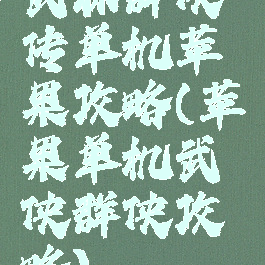 武林群侠
传单机苹
果攻略(苹
果单机武
侠群侠攻
略)